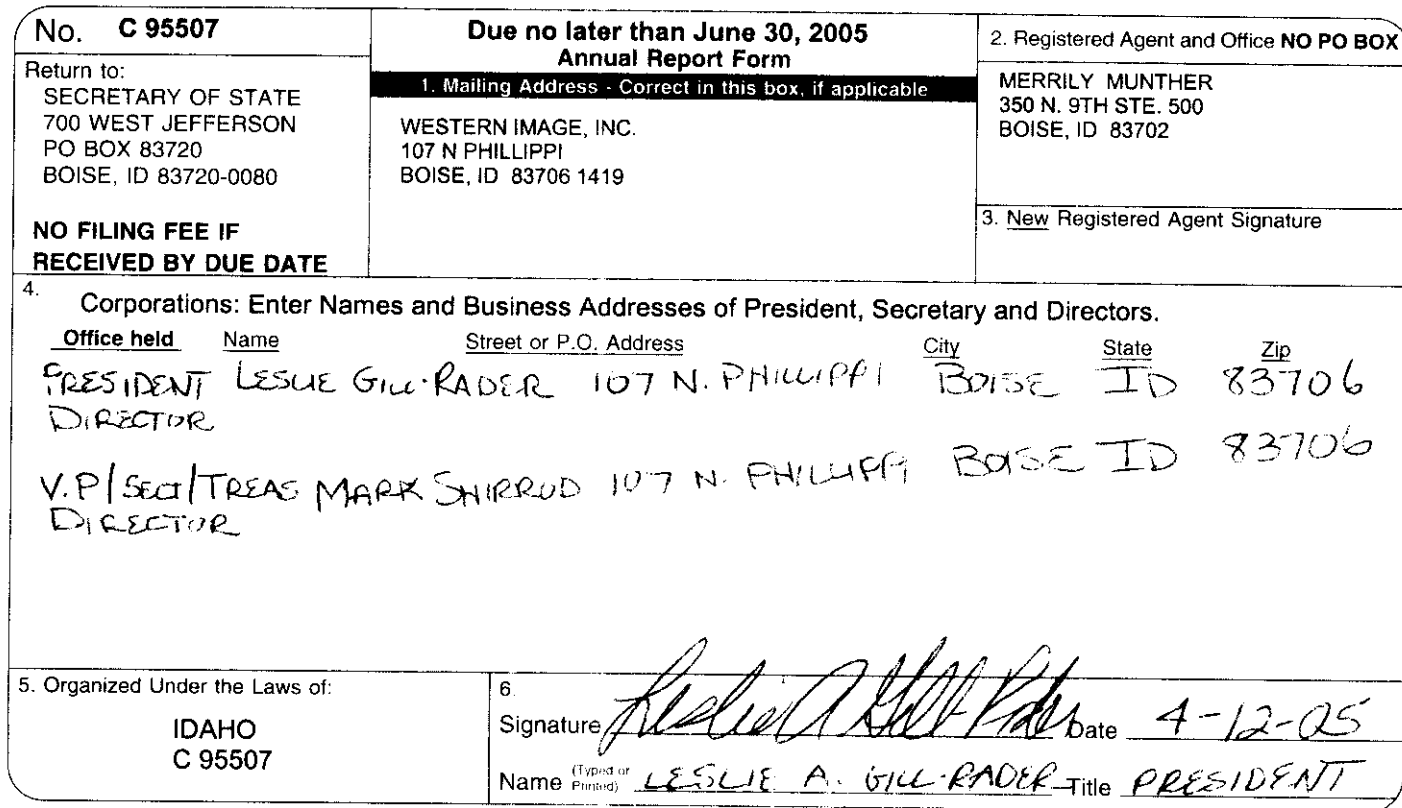 No. C 95507
Return to:
SECRETARY OF STATE
700 WEST JEFFERSON
PO BOX 83720
BOISE, ID 83720-0080
NO FILING FEE IF
RECEIVED BY DUE DATE
Due no later than June 30, 2005
Annual Report Form
1. Mailing Address - Correct in this box, if applicable
WESTERN IMAGE, INC.
107 N PHILLIPPI
BOISE, ID 83706 1419
2. Registered Agent and Office NO PO BOX
MERRILY MUNTHER
350 N. 9TH STE. 500
BOISE, ID 83702
3. New Registered Agent Signature
4. Corporations: Enter Names and Business Addresses of President, Secretary and Directors.
Office held Name Street or P.O. Address City State Zip
PRESIDENT LESLIE GILL-RADER 107 N. PHILLIPPI BOISE ID 83706
DIRECTOR
V.P/SECT/TREAS MARK SHIRROD 107 N. PHILLIPPI BOISE ID 83706
DIRECTOR
5. Organized Under the Laws of:
IDAHO
C 95507
6.
Signature Leslie A Gill-Rader Date 4-12-05
Name (Typed or Printed) LESLIE A. GILL-RADER Title PRESIDENT